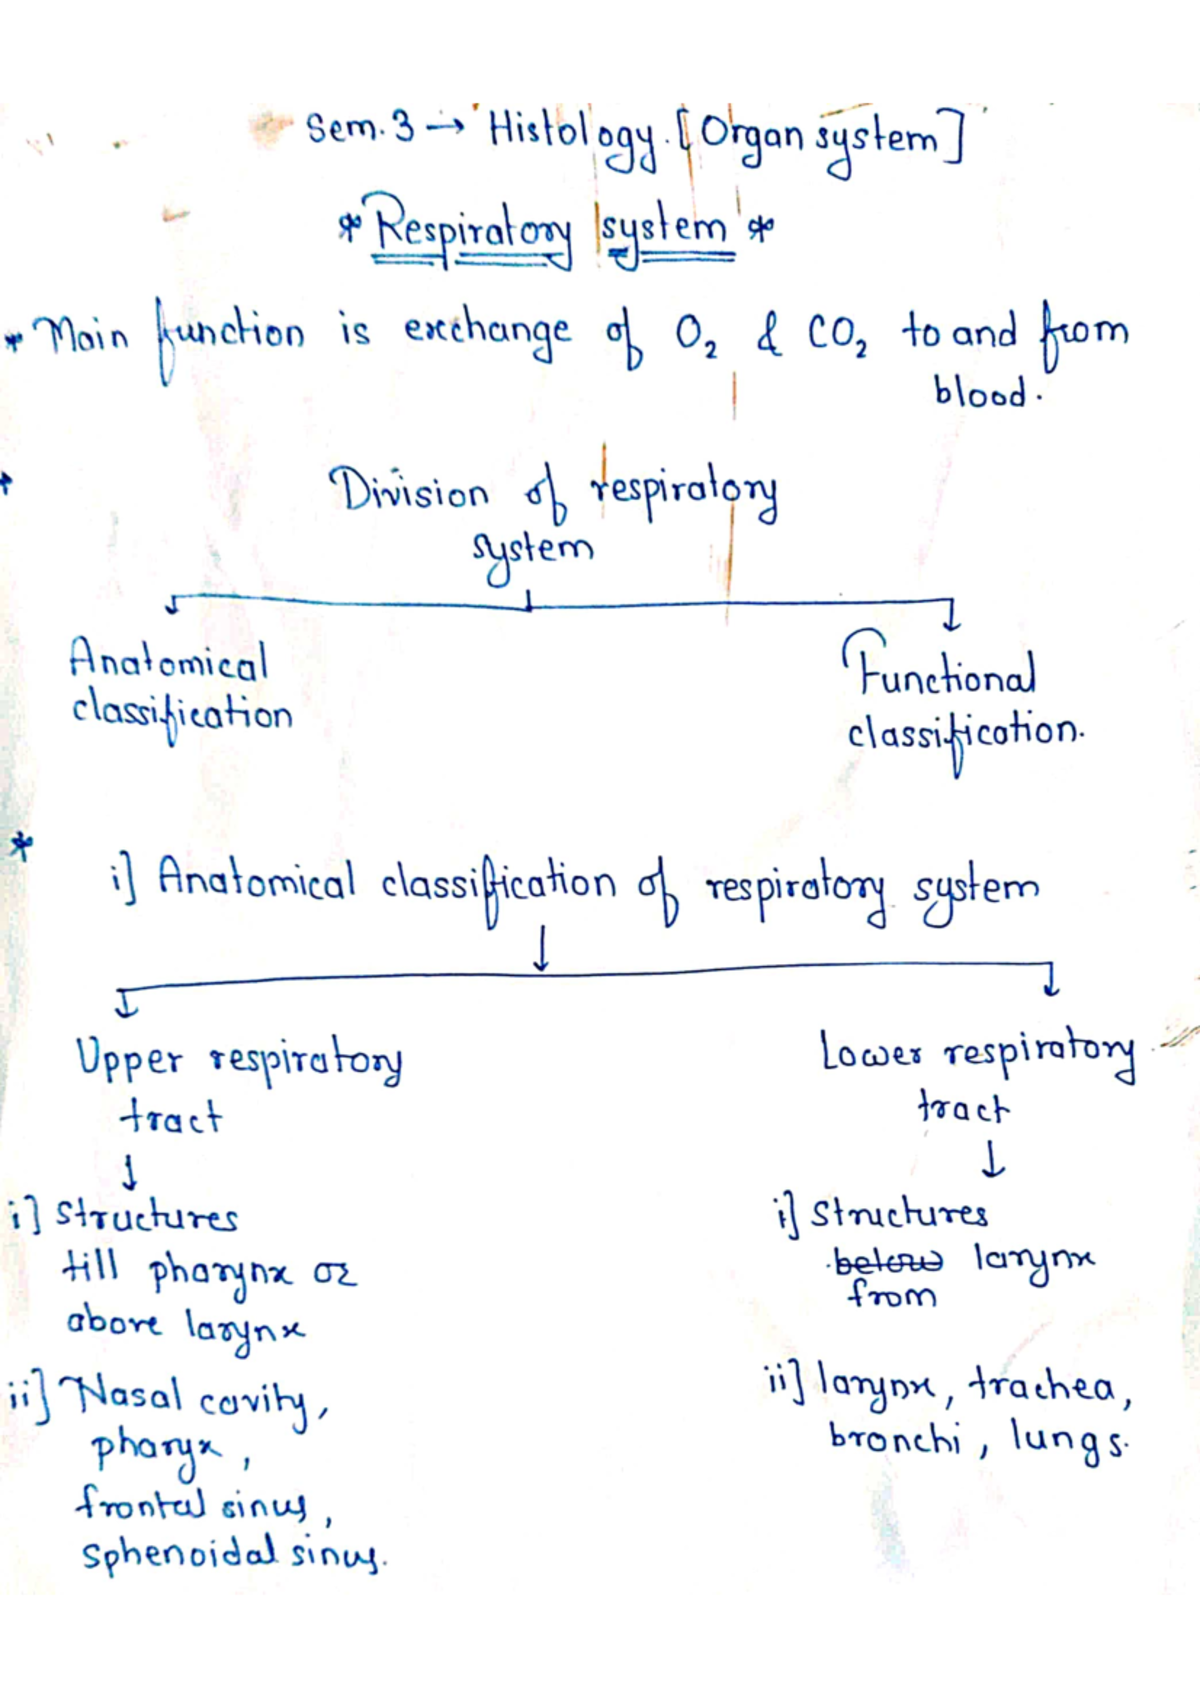 Sem. 3 → Histology. [Organ system]
* Respiratory system *
* Main function is exchange of O₂ & CO₂ to and from
blood.
Division of respiratory
system
Anatomical
classification
Functional
classification.
*
i] Anatomical classification of respiratory system
↓
Upper respiratory
tract
↓
i] Structures
till pharynx or
above larynx
ii] Nasal cavity,
pharyx,
frontal sinus,
sphenoidal sinus.
Lower respiratory
tract
↓
i] Structures
below larynx
from
ii] larynx, trachea,
bronchi, lungs.